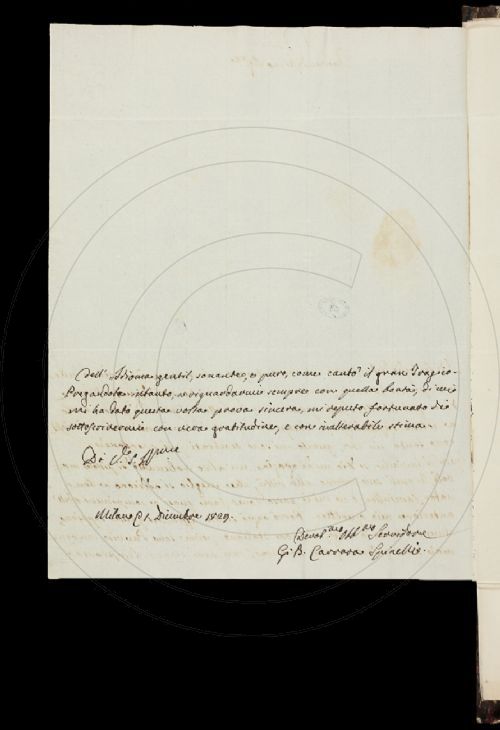 dell' Idioma gentil, sonante, e puro, come cantò il gran Tragico.
Pregandola intanto a risguardarmi sempre con quella bontà, di cui
mi ha dato questa volta prova sincera, mi reputo fortunato di
sottoscrivermi con vera gratitudine, e con inalterabile stima.
Di V. S.
Milano 1. Dicembre 1829.
Servidore
G. B. Carrara Spinelli